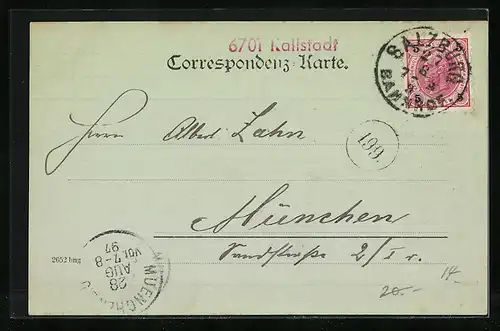 6701 Kallstadt
Correspondenz-Karte.
SALZBURG
BAHNHOF
Herrn Albert Zahn
199
München
Sandstraße 2/I r.
2652 bng
MUENCHEN
28
AUG
VOR 7-8
97
20.-
14.-